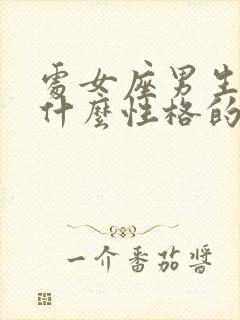 處女座男生
什麼性格的
一介番茄醬